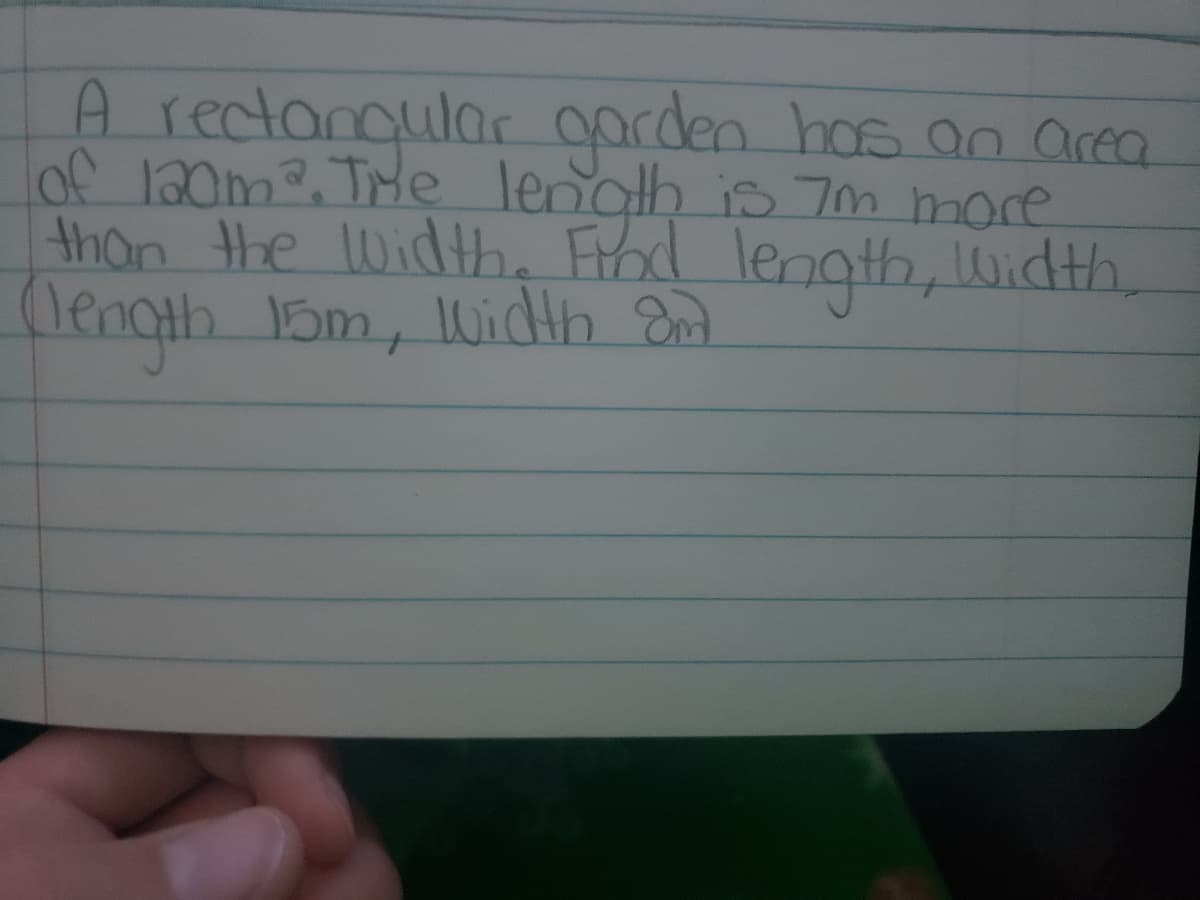 A rectangular garden has an area
of 120m². The length is 7m more
than the width. Find length, width.
(length 15m, width 8m)